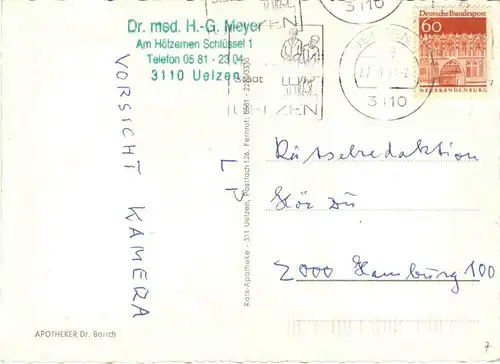 Dr. med. H.-G. Meyer
Am Hölzernen Schlüssel 1
Telefon 05 81 - 23 04
3110 Uelzen
VORSICHT KAMERA
LP
Rats-Apotheke - 311 Uelzen, Postfach 126, Fernruf:
APOTHEKER Dr. Borsch
Stadt
UELZEN
3110
3110
Deutsche Bundespost
60
NEUBRANDENBURG
Rätselredaktion
Hör Zu
2000 Hamburg 100
7